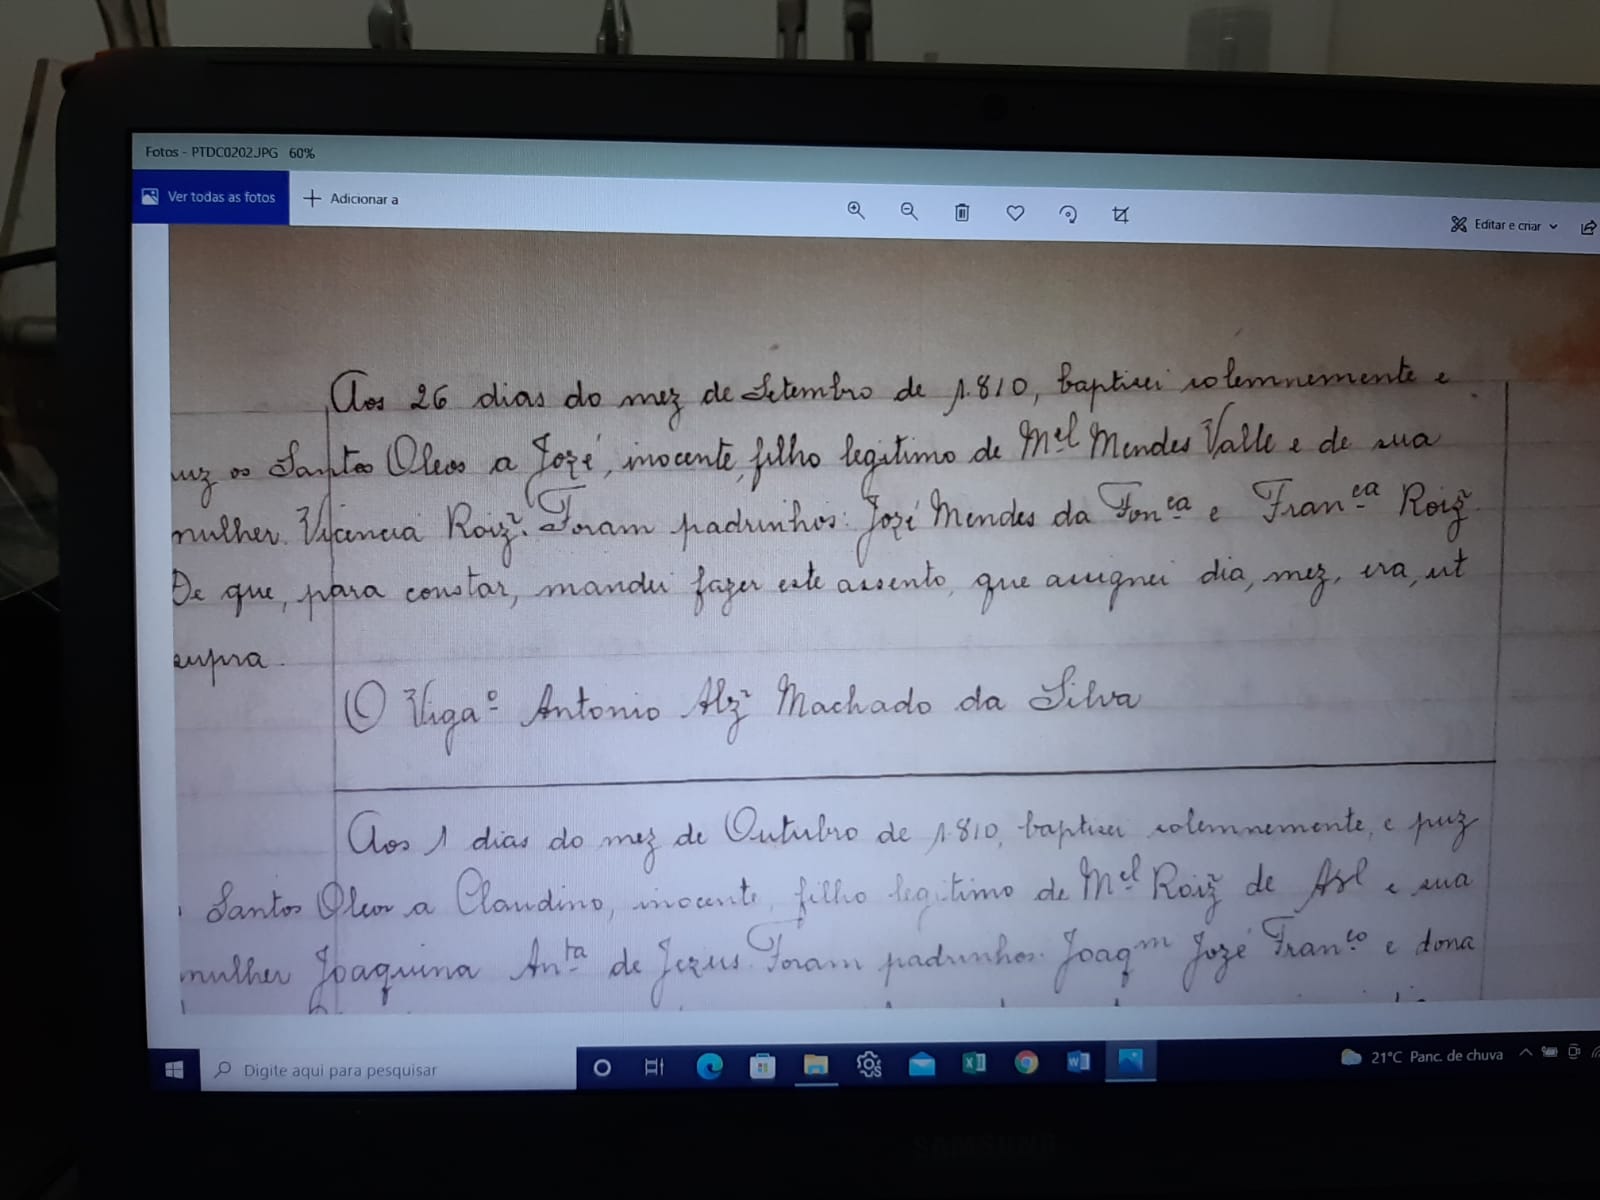 Fotos - PTDC0202.JPG 60%
Ver todas as fotos
Adicionar a
Editar e criar
Aos 26 dias do mez de Setembro de 1.810, baptisei solemnemente e
uz os Santos Oleos a Jozé, inocente, filho legitimo de Mel Mendes Valle e de sua
mulher Vicencia Roiz. Foram padrinhos: Jozé Mendes da Fonca e Franca Roiz.
De que, para constar, mandei fazer este assento, que assignei dia, mez, era, ut
supra.
O Vigao Antonio Alz Machado da Silva
Aos 1 dias do mez de Outubro de 1.810, baptisei solemnemente, e puz
Santos Oleos a Claudino, inocente, filho legitimo de Mel Roiz de e sua
mulher Joaquina Anta de Jezus. Foram padrinhos. Joaqm Jozé Franco e dona
Digite aqui para pesquisar
21°C Panc. de chuva
SAMSUNG